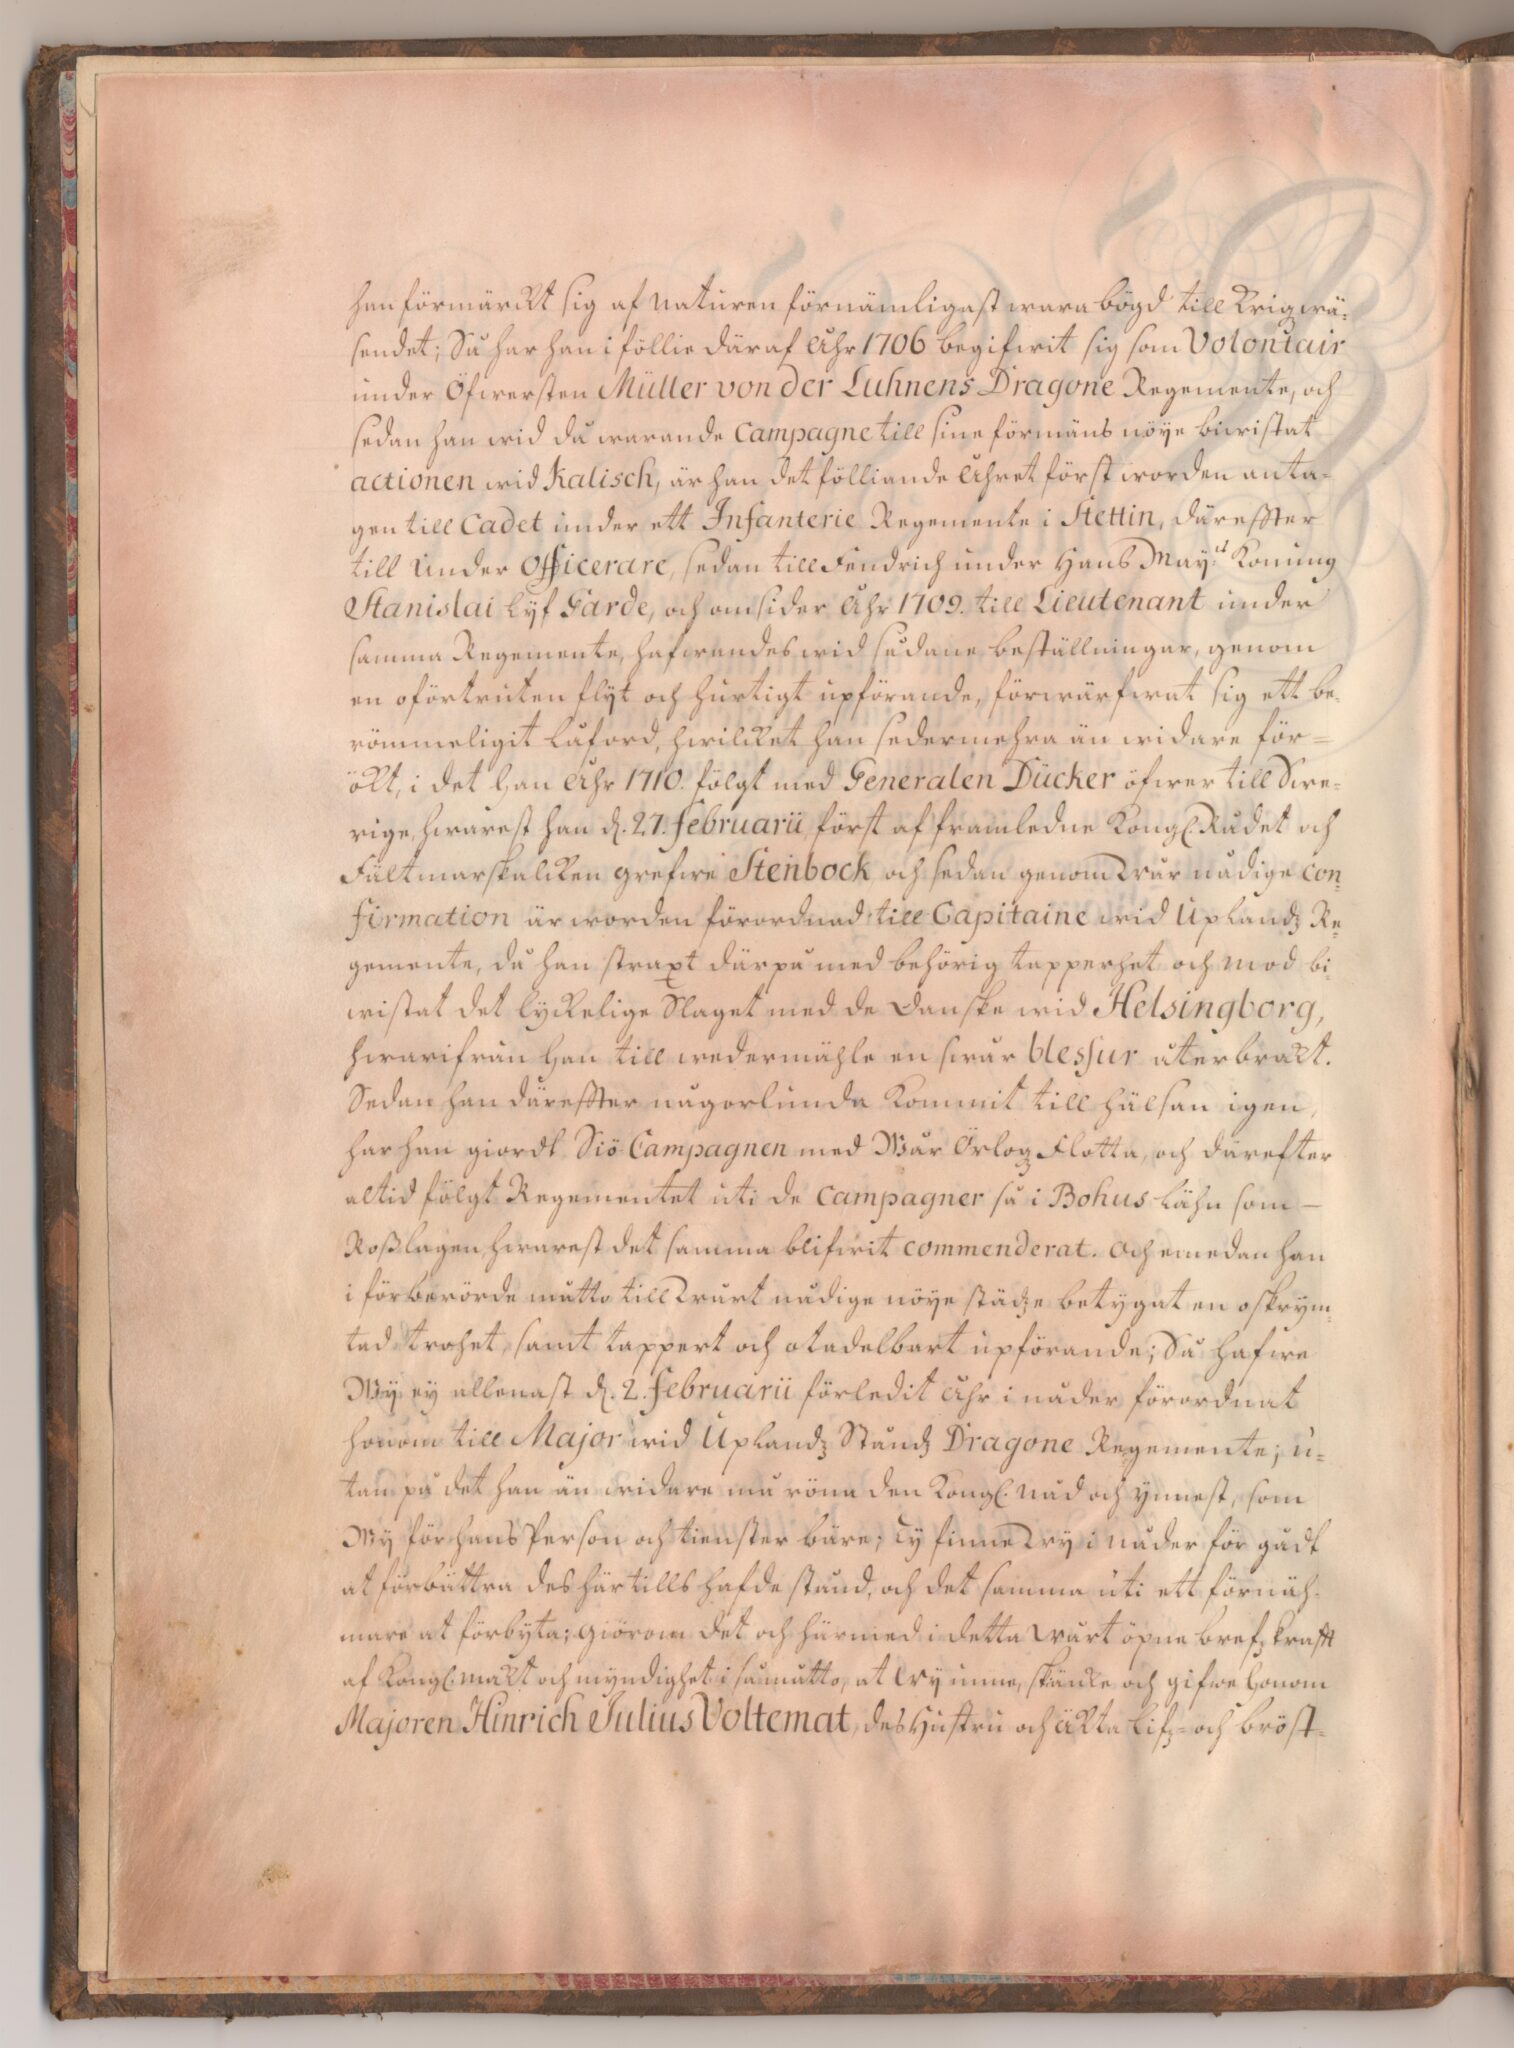 han förmärckt sig af Naturen förnämligast wara bögd till Krigzwä-
sendet; Så har han i föllie däraf Åhr 1706 begifwit sig som Volontair
under Öfwersten Müller von der Luhnens Dragone Regemente, och
sedan han wid då warande Campagne till sine förmäns nöye biwistat
actionen wid Kalisch, är han det fölliande Åhret först worden anta-
gen till Cadet under ett Infanterie Regemente i Stettin, däreffter
till Under Officerare, sedan till Fendrich under Hans May:tz Konung
Stanislai Lyf Garde, och omsider Åhr 1709. till Lieutenant under
samma Regemente, hafwandes wid sådane beställningar, genom
en oförtruten flyt och hurtigt upförande, förwärfwat sig ett be-
römmeligit låford, hwilcket han sedermehra än widare för-
ökt, i det han Åhr 1710. fölgt med Generalen Dücker öfwer till Swe-
rige, hwarest han d. 27. Februarii, först af framledne Kongl. Rådet och
Fältmarskalcken Grefwe Stenbock, och sedan genom Wår nådige con-
firmation är worden förordnad till Capitaine wid Uplandz Re-
gemente, då han straxt därpå med behörig tapperhet och mod bi-
wistat det lyckelige Slaget med de Danske wid Helsingborg,
hwarifrån han till wedermähle en swår blessur återbrackt.
Sedan han däreffter någorlunda kommit till hälsan igen,
har han giordt Siö Campagnen med Wår Örlogz Flotta, och därefter
altid fölgt Regementet uti de Campagner så i Bohus Lähn som
Roßlagen, hwarest det samma blifwit commenderat. Och emedan han
i förberörde måtto till Wårt nådige nöye städze betygat en oskrym-
tad trohet, samt tappert och otadelbart upförande; Så hafwe
Wy ey allenast d. 2. Februarii förledit Åhr i nåder förordnat
honom till Major wid Uplandz Ståndz Dragone Regemente; u-
tan på det han än widare må röna den Kongl. Nåd och ynnest, som
Wy för hans Person och tienster bäre; Ty finne Wy i nåder för godt
at förbättra des här tills hafde stånd, och det samma uti ett förnäh-
mare at förbyta; giörom det och härmed i detta Wårt öpne bref, krafft
af Kongl. Mackt och myndighet i så måtto, at Wy unne, skiäncke och gifwe honom
Majoren Hinrich Julius Voltemat, des Hustru och äckta Lifz- och bröst-